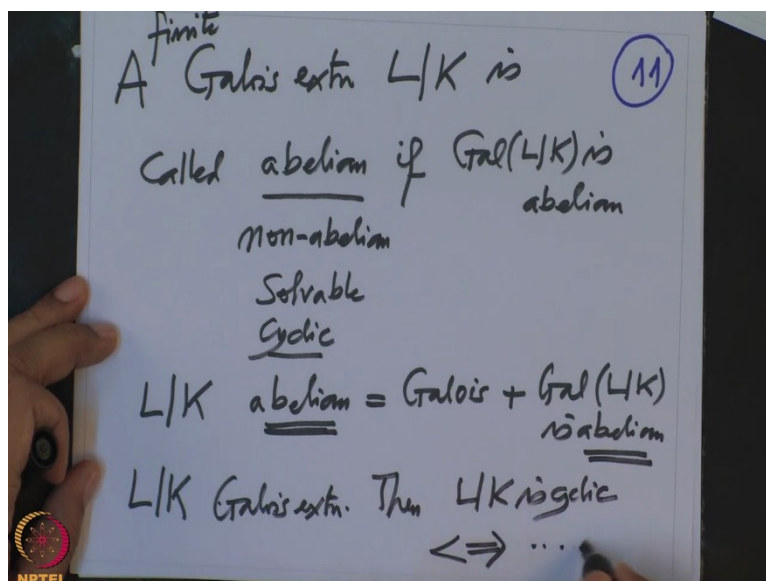 finite
A Galois extn L/K is
11
Called abelian if Gal(L/K) is
abelian
non-abelian
Solvable
Cyclic
L/K abelian = Galois + Gal(L/K)
is abelian
L/K Galois extn. Then L/K is cyclic
<=> ...
NPTEL